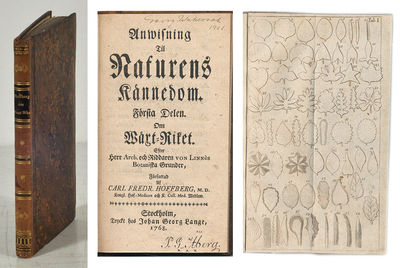 Anwisning
Til
Naturens
Kännedom.
Första Delen.
Om
Wäxt-Riket.
Efter
Herr Arch. och Riddaren VON LINNÉS
Botaniska Grunder,
Författad
Af
CARL FREDR. HOFFBERG, M. D.
Kongl. Hof-Medicus och K. Coll. Med. Medlem.
Stockholm,
Tryckt hos Johan Georg Lange,
1768.
Åberg.
Tab. I.